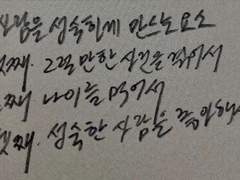 사람을 성숙하게 만드는 요소
첫째. 그럴 만한 시련을 겪어서
둘째 나이를 먹어서
셋째. 성숙한 사람을 좋아해서